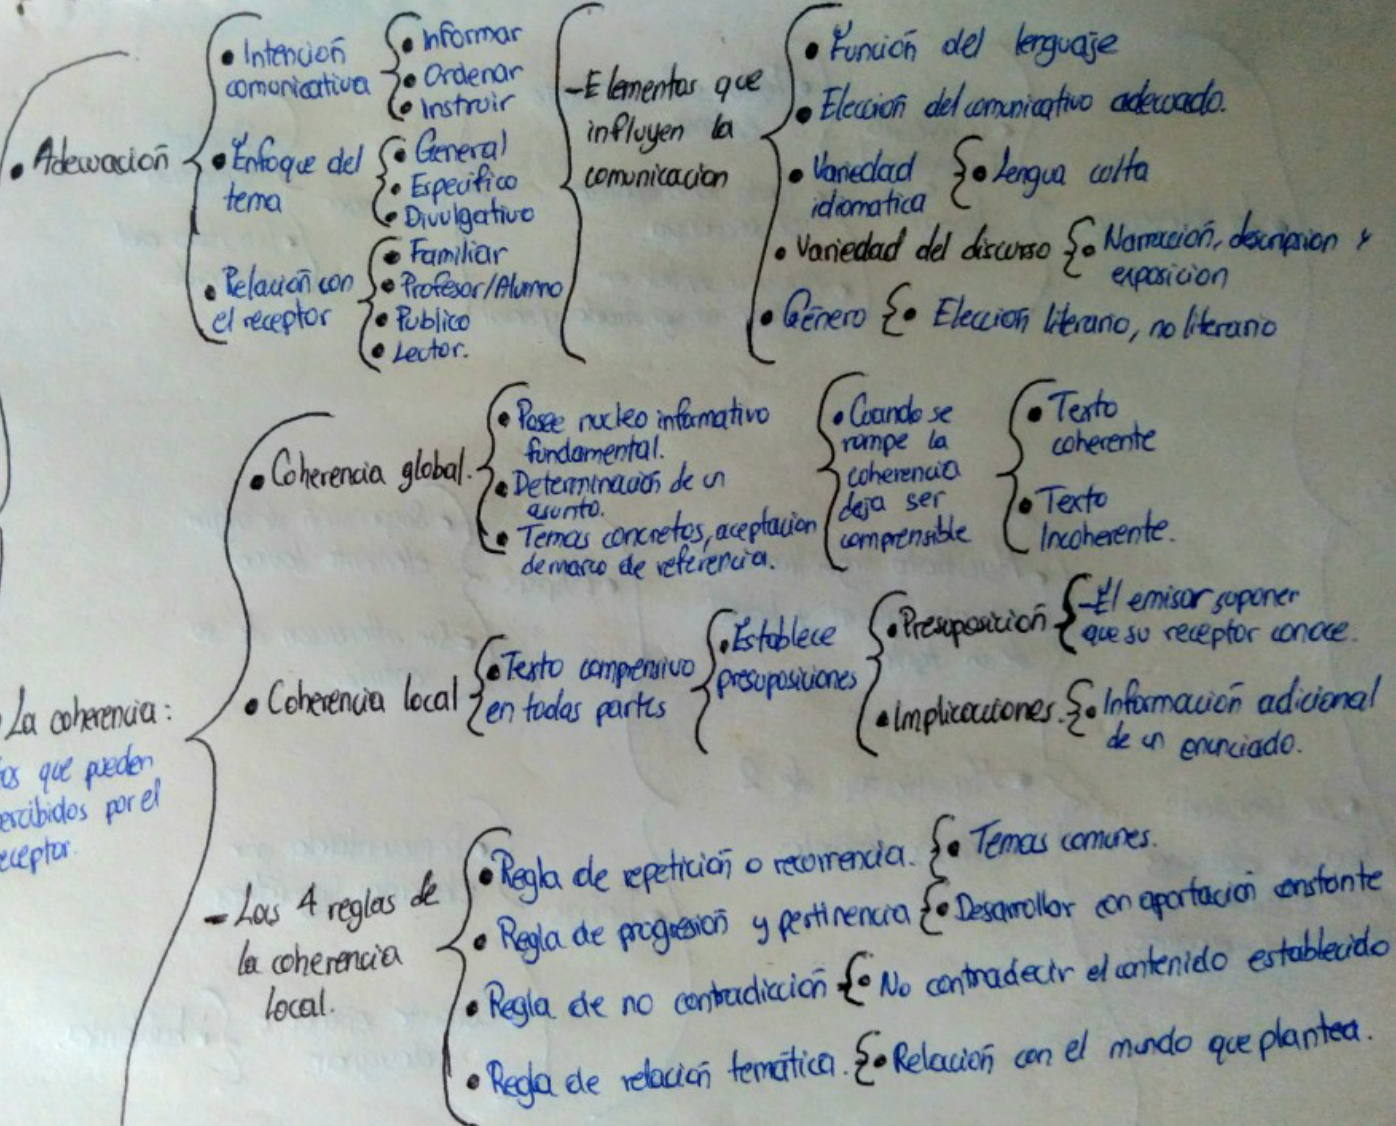 • Adecuación
• Intención
comunicativa
• Informar
• Ordenar
• Instruir
• Enfoque del
tema
• General
• Especifico
• Divulgativo
• Relación con
el receptor
• Familiar
• Profesor/Alumno
• Publico
• Lector.
- Elementos que
influyen la
comunicacion
• Función del lenguaje
• Elección del comunicativo adecuado.
• Variedad
idiomatica
• Lengua culta
• Variedad del discurso
• Narración, descripcion y
exposicion
• Género
• Elección literario, no literario
La coherencia:
que pueden
por el
• Coherencia global.
• Posee nucleo informativo
fundamental.
• Determinación de un
asunto.
• Temas concretos, aceptacion
de marco de referencia.
• Cuando se
rompe la
coherencia
deja ser
comprensible
• Texto
coherente
• Texto
Incoherente.
• Coherencia local
• Texto comprensivo
en todas partes
• Establece
presuposiciones
• Presuposición
- El emisor suponer
que su receptor conoce.
• Implicaciones.
• Información adicional
de un enunciado.
- Las 4 reglas de
la coherencia
local.
• Regla de repetición o recorrencia.
• Temas comunes.
• Regla de progresión y pertinencia
• Desarrollar con aportación constante
• Regla de no contradicción
• No contradecir el contenido establecido
• Regla de relación temática.
• Relación con el mundo que plantea.